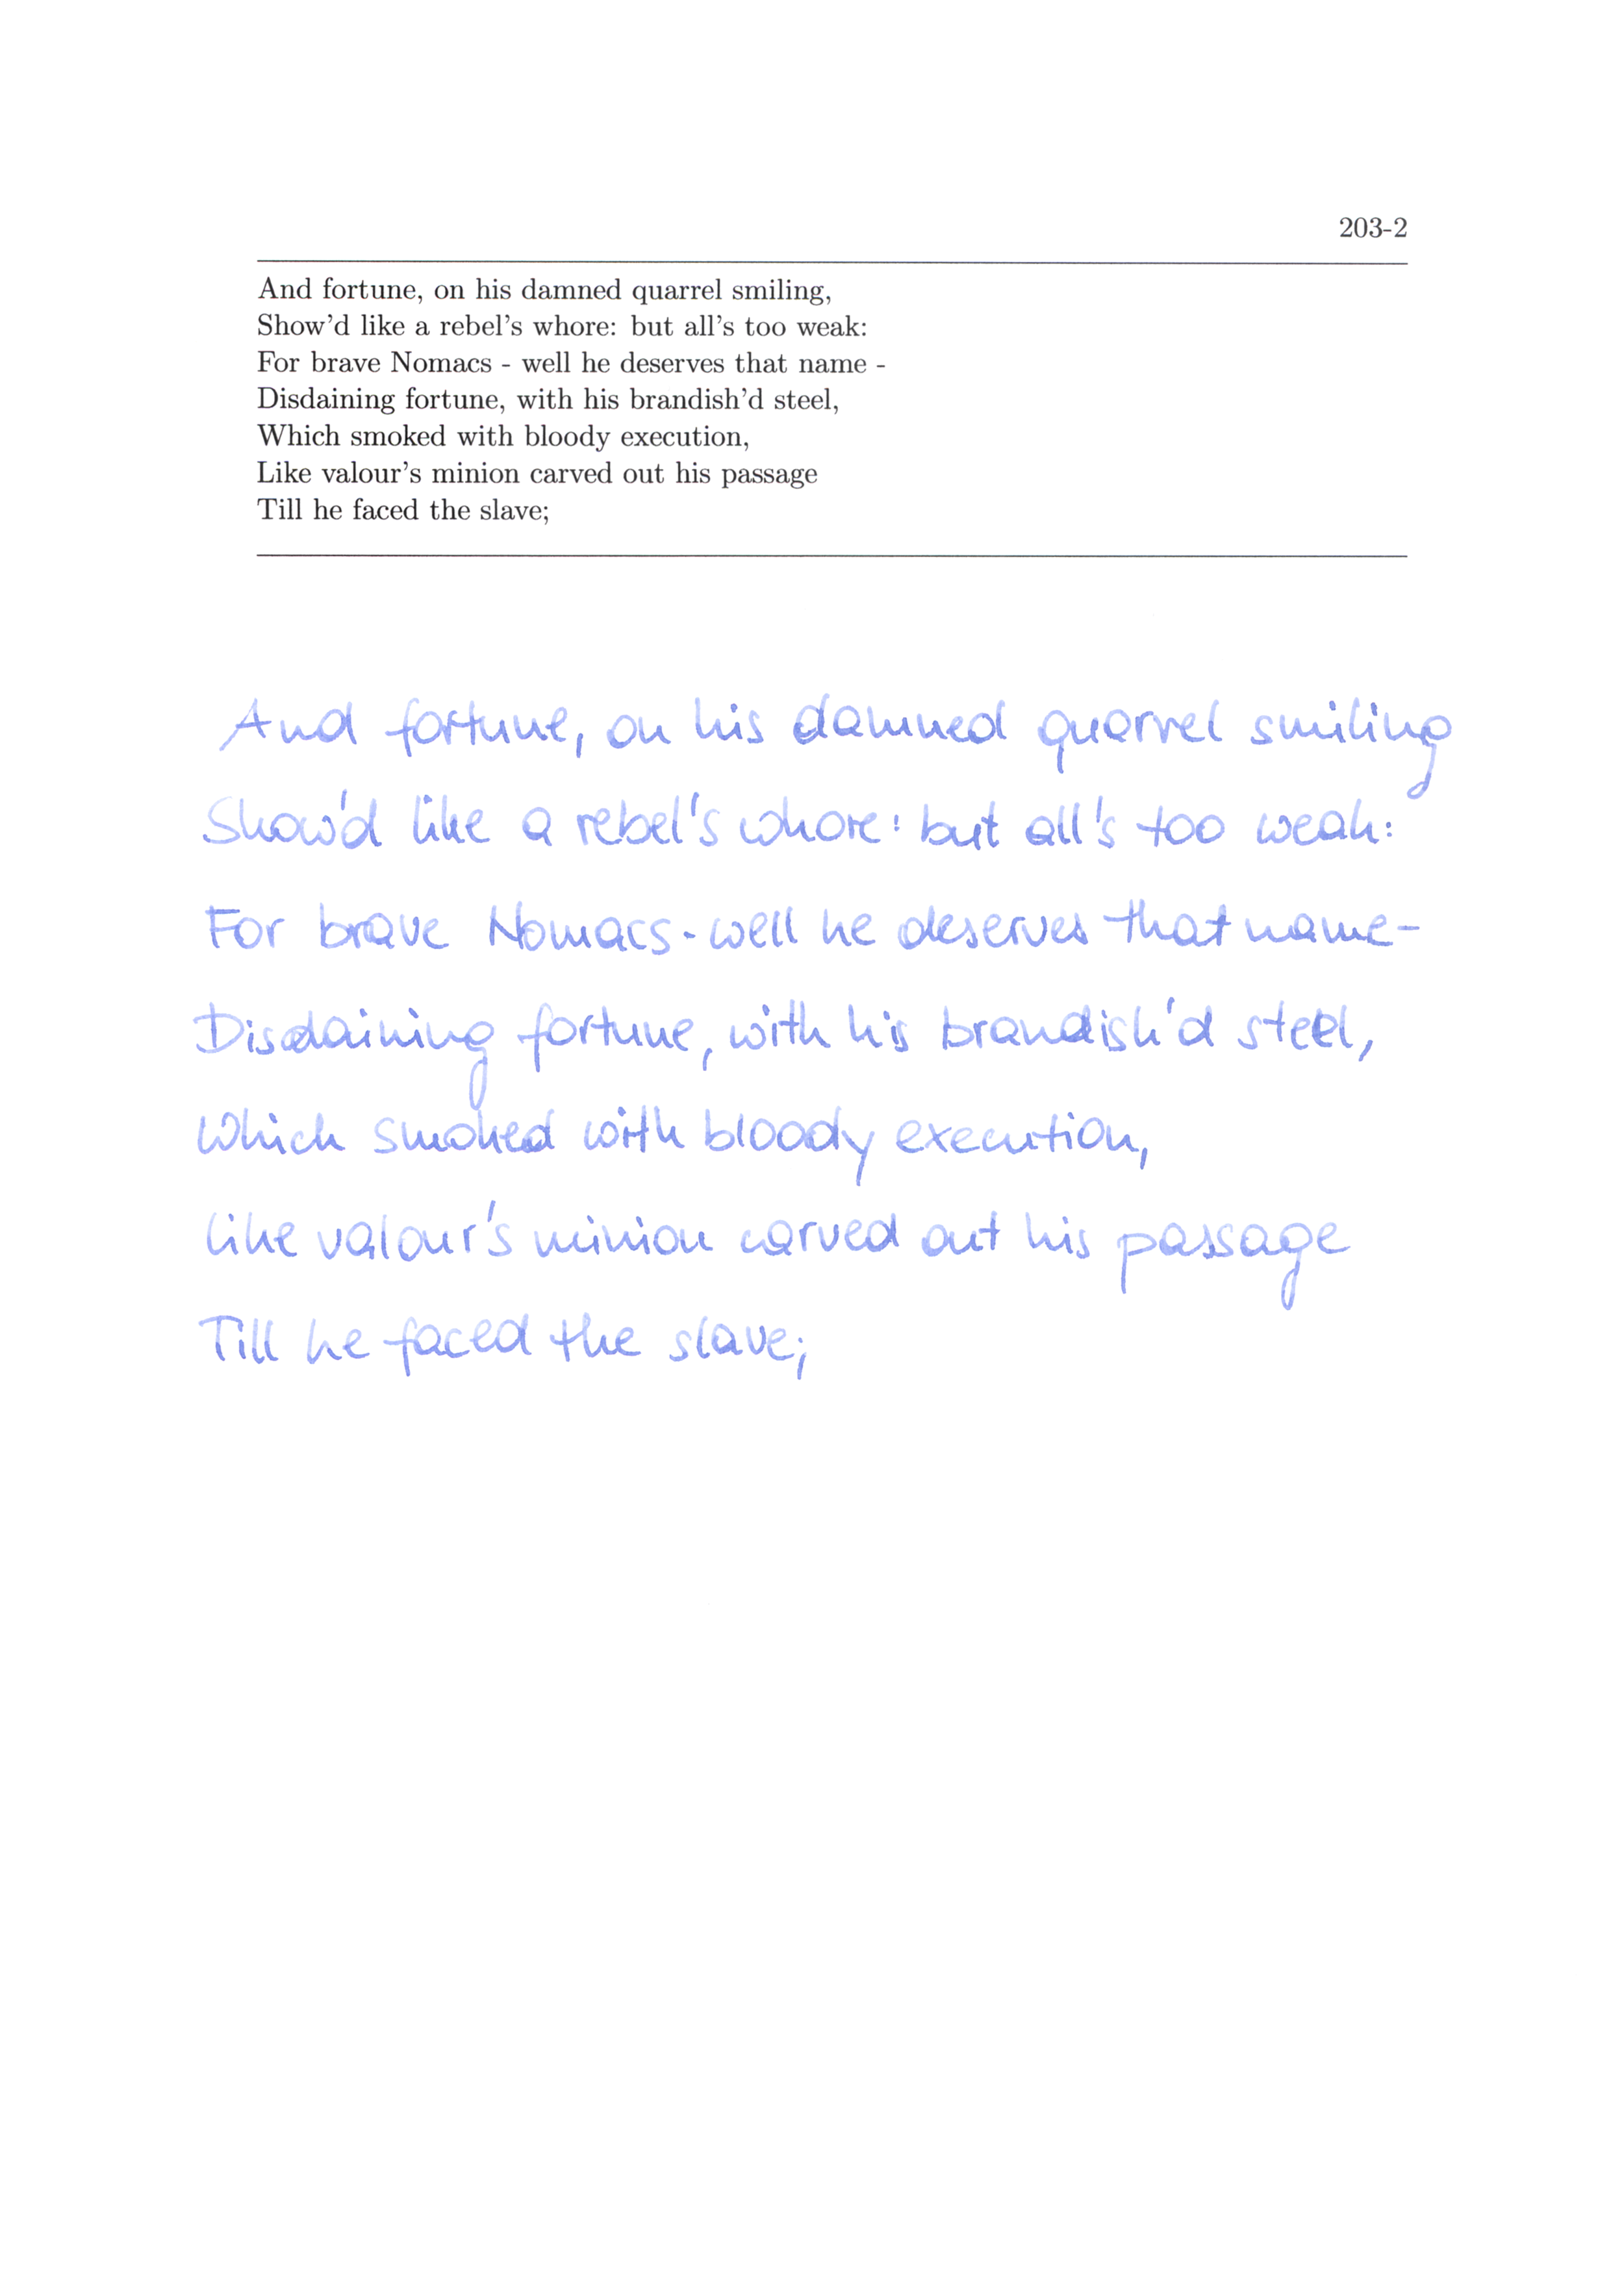 203-2
And fortune, on his damned quarrel smiling,
Show'd like a rebel's whore: but all's too weak:
For brave Nomacs - well he deserves that name -
Disdaining fortune, with his brandish'd steel,
Which smoked with bloody execution,
Like valour's minion carved out his passage
Till he faced the slave;
And fortune, on his damned quarrel smiling
Show'd like a rebel's whore: but all's too weak:
For brave Nomacs - well he deserves that name -
Disdaining fortune, with his brandish'd steel,
Which smoked with bloody execution,
like valour's minion carved out his passage
Till he faced the slave;